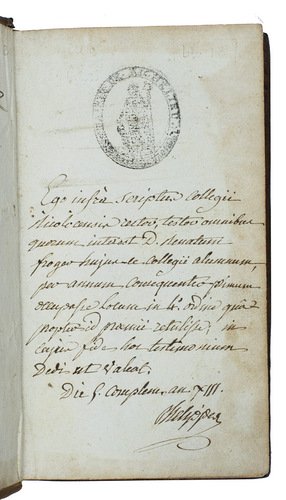 Ego infra scriptus collegii
rector, testor omnibus
quorum interest D. Renatum
froger hujusce collegii alumnum,
per annum consequenter primum
occupasse locum in 4.ª ordine qua
propter id præmii retulisse, in
cujus fide hoc testimonium
Dedi ut valeat.
Die 5. Complem. an. XIII.